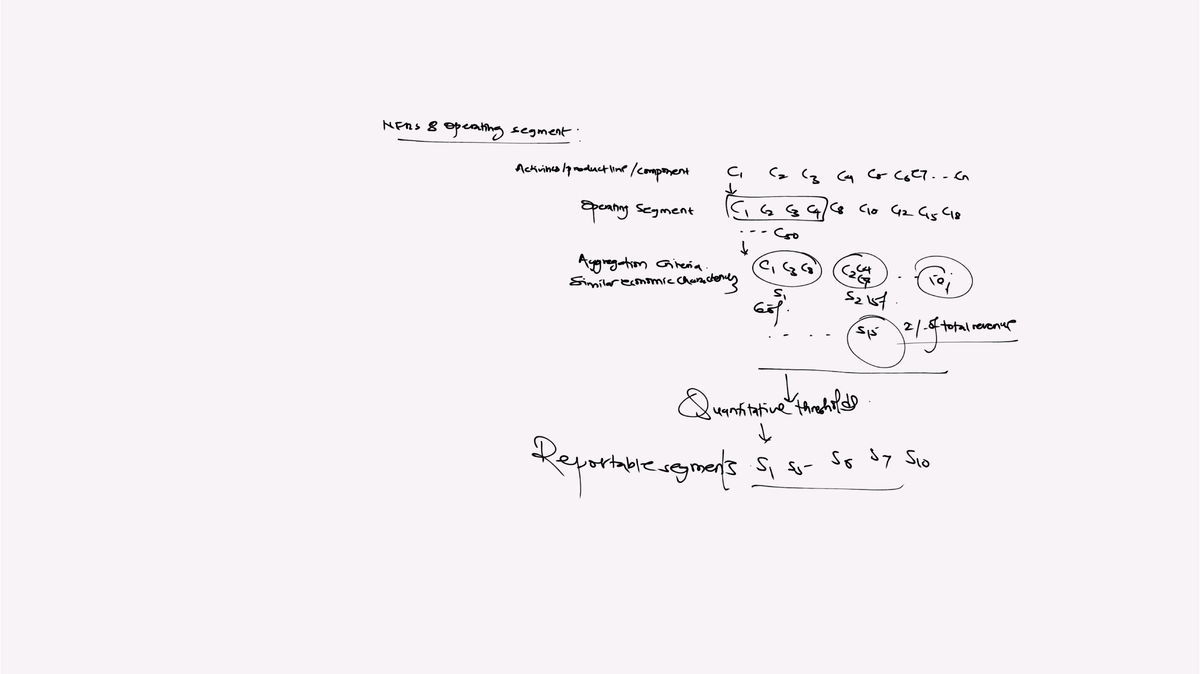 NFRS 8 Operating segment :
Activities/product line/component C1 C2 C3 C4 C5 C6 C7 .. Cn
Operating Segment C1 C2 C3 C4 C8 C10 C12 C15 C18
... C50
Aggregation Criteria. C1 C3 C8 C2 C4 ..
Similar economic characteristics
S1 S2 15%.
.... S15 2% of total revenue
Quantitative thresholds.
Reportable segments S1 S5 S6 S7 S10